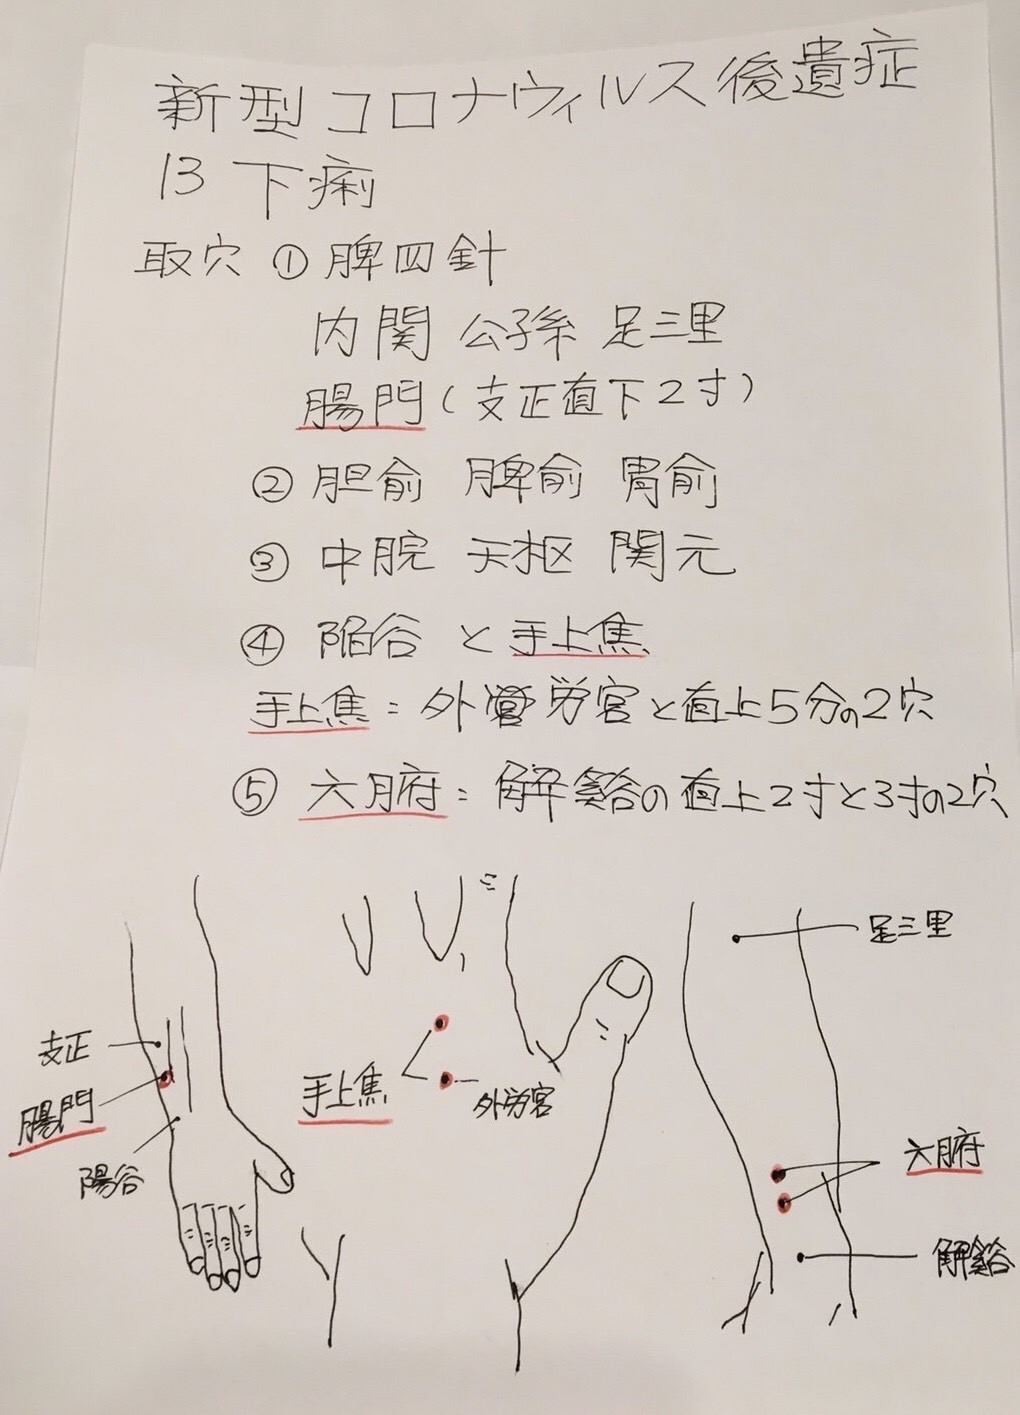 新型コロナウィルス後遺症
13 下痢
取穴 ① 脾四針
内関 公孫 足三里
腸門(支正直下2寸)
② 胆俞 脾俞 胃俞
③ 中脘 天枢 関元
④ 陥谷 と 手上焦
手上焦 = 外労宮と直上5分の2穴
⑤ 六腑 = 解谿の直上2寸と3寸の2穴
足三里
支正
腸門
陽谷
手上焦
外労宮
六腑
解谿